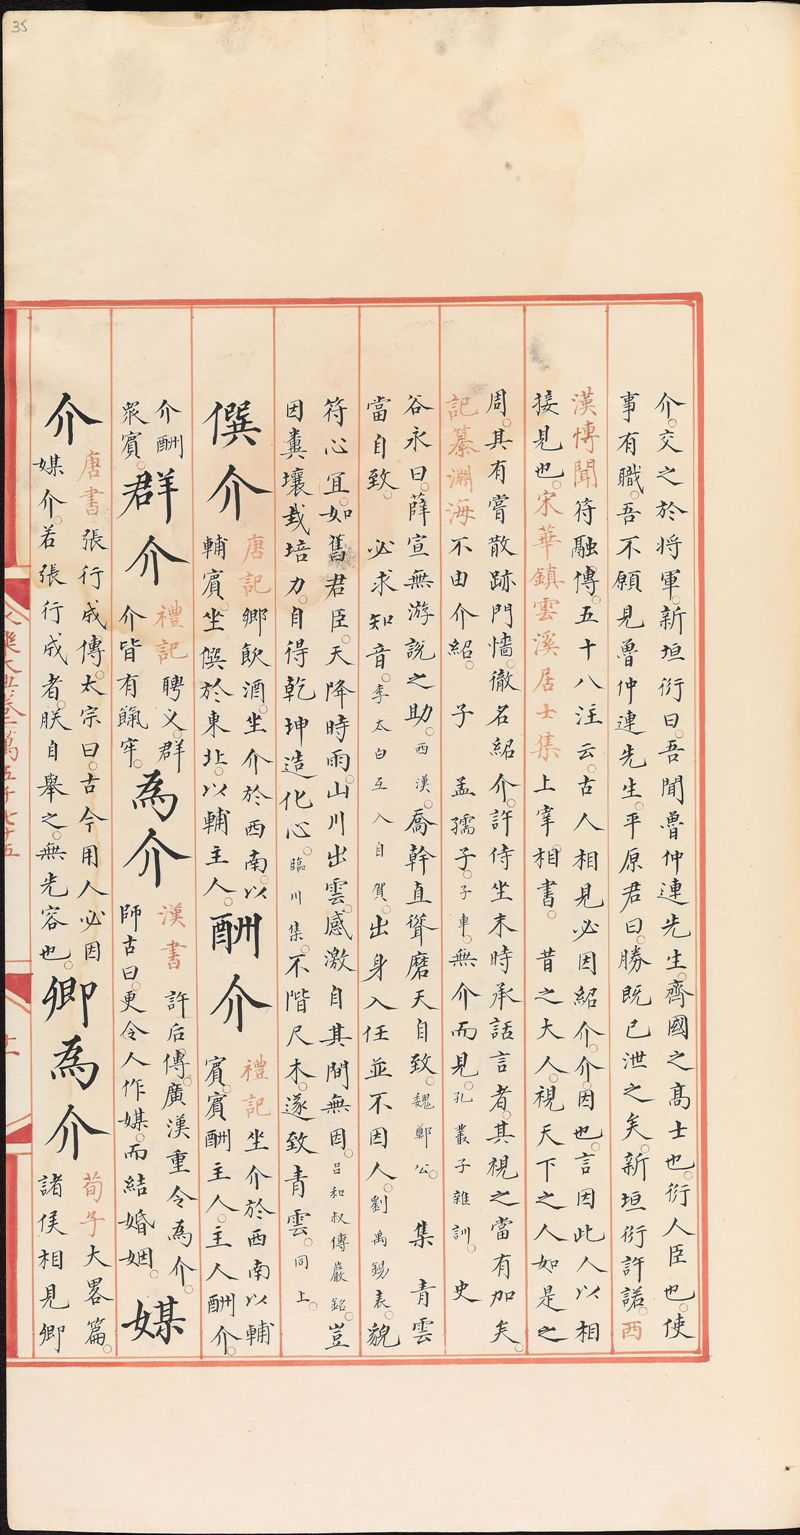 35
介。交之於將軍。新垣衍曰。吾聞魯仲連先生。齊國之高士也。衍人臣也。使
事有職。吾不願見魯仲連先生。平原君曰。勝既已泄之矣。新垣衍許諾。西
漢愽聞符融傳。五十八注云。古人相見必因紹介。介。因也。言因此人以相
接見也。宋華鎮雲溪居士集上宰相書。昔之大人。視天下之人如是之
周。其有嘗散跡門墻。徹名紹介。許侍坐末時承話言者。其視之當有加矣。
記纂淵海不由介紹。子 孟孺子。子車。無介而見。孔叢子雜訓。史
谷永曰。薛宣無游說之助。西漢。喬幹直聳磨天自致。魏鄭公。集 青雲
當自致。必求知音。李太白五入自賀。出身入任並不因人。劉禹錫表。貌
符心冝。如舊君臣。天降時雨。山川出雲。感激自其間無因。呂和叔傅巖銘。豈
因糞壤栽培力。自得乾坤造化心。臨川集。不階尺木。遂致青雲。同上。
僎介
唐記鄉飲酒。坐介於西南。以
輔賓。坐僎於東北。以輔主人。
酬介
禮記坐介於西南以輔
賓。賓酬主人。主人酬介。
介酬
衆賓。
群介
禮記聘义。群
介皆有餼牢。
為介
漢書許后傳。廣漢重令為介。
師古曰。更令人作媒。而結婚姻。
媒
介
唐書張行成傳。太宗曰。古今用人必因
媒介。若張行成者。朕自舉之。無先容也。
卿為介
荀子大畧篇。
諸侯相見卿